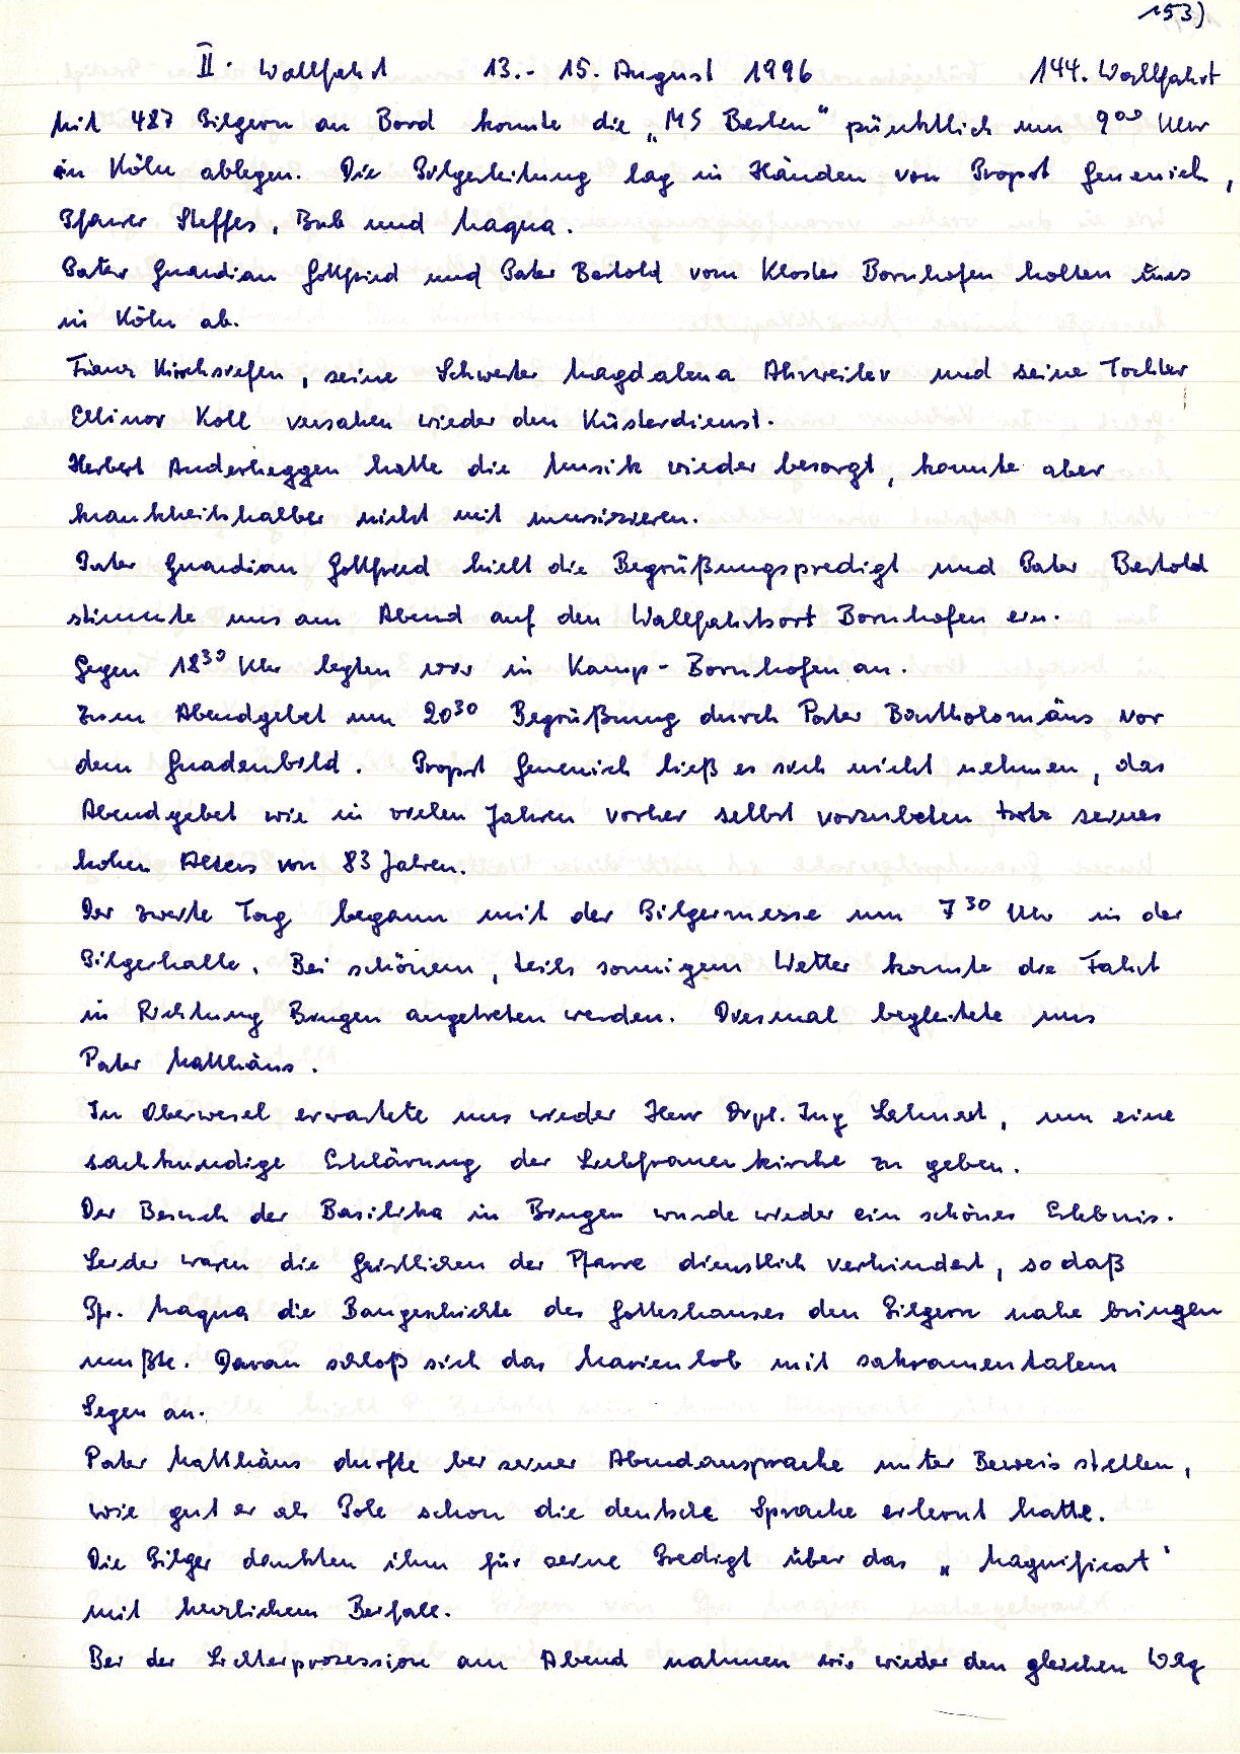 153)
II. Wallfahrt 13.- 15. August 1996 144. Wallfahrt
Mit 487 Pilgern an Bord konnte die „MS Berlin“ pünktlich um 9⁰⁰ Uhr
in Köln ablegen. Die Pilgerleitung lag in Händen von Propst Genenich,
Pfarrer Steffes, Bub und Maqua.
Pater Guardian Gottfried und Pater Bertold vom Kloster Bornhofen holten uns
in Köln ab.
Franz Kirchsrefen, seine Schwester Magdalena Ahrweiler und seine Tochter
Ellinor Koll versahen wieder den Küsterdienst.
Herbert Anderheggen hatte die Musik wieder besorgt, konnte aber
krankheitshalber nicht mit musizieren.
Pater Guardian Gottfried hielt die Begrüßungspredigt und Pater Bertold
stimmte uns am Abend auf den Wallfahrtsort Bornhofen ein.
Gegen 18³⁰ Uhr legten wir in Kamp-Bornhofen an.
Zum Abendgebet um 20³⁰ Begrüßung durch Pater Bartholomäus vor
dem Gnadenbild. Propst Genenich ließ es sich nicht nehmen, das
Abendgebet wie in vielen Jahren vorher selbst vorzubeten trotz seines
hohen Alters von 83 Jahren.
Der zweite Tag begann mit der Pilgermesse um 7³⁰ Uhr in der
Pilgerhalle. Bei schönem, teils sonnigem Wetter konnte die Fahrt
in Richtung Bingen angetreten werden. Diesmal begleitete uns
Pater Matthäus.
In Oberwesel erwartete uns wieder Herr Dipl. Ing Lahnert, um eine
sachkundige Erklärung der Liebfrauenkirche zu geben.
Der Besuch der Basilika in Bingen wurde wieder ein schönes Erlebnis.
Leider waren die Geistlichen der Pfarre dienstlich verhindert, sodaß
Pfr. Maqua die Baugeschichte des Gotteshauses den Pilgern nahe bringen
mußte. Daran schloß sich das Marienlob mit sakramentalem
Segen an.
Pater Matthäus durfte bei seiner Abendansprache unter Beweis stellen,
wie gut er als Pole schon die deutsche Sprache erlernt hatte.
Die Pilger dankten ihm für seine Predigt über das „Magnificat“
mit herzlichem Beifall.
Bei der Lichterprozession am Abend nahmen wir wieder den gleichen Weg